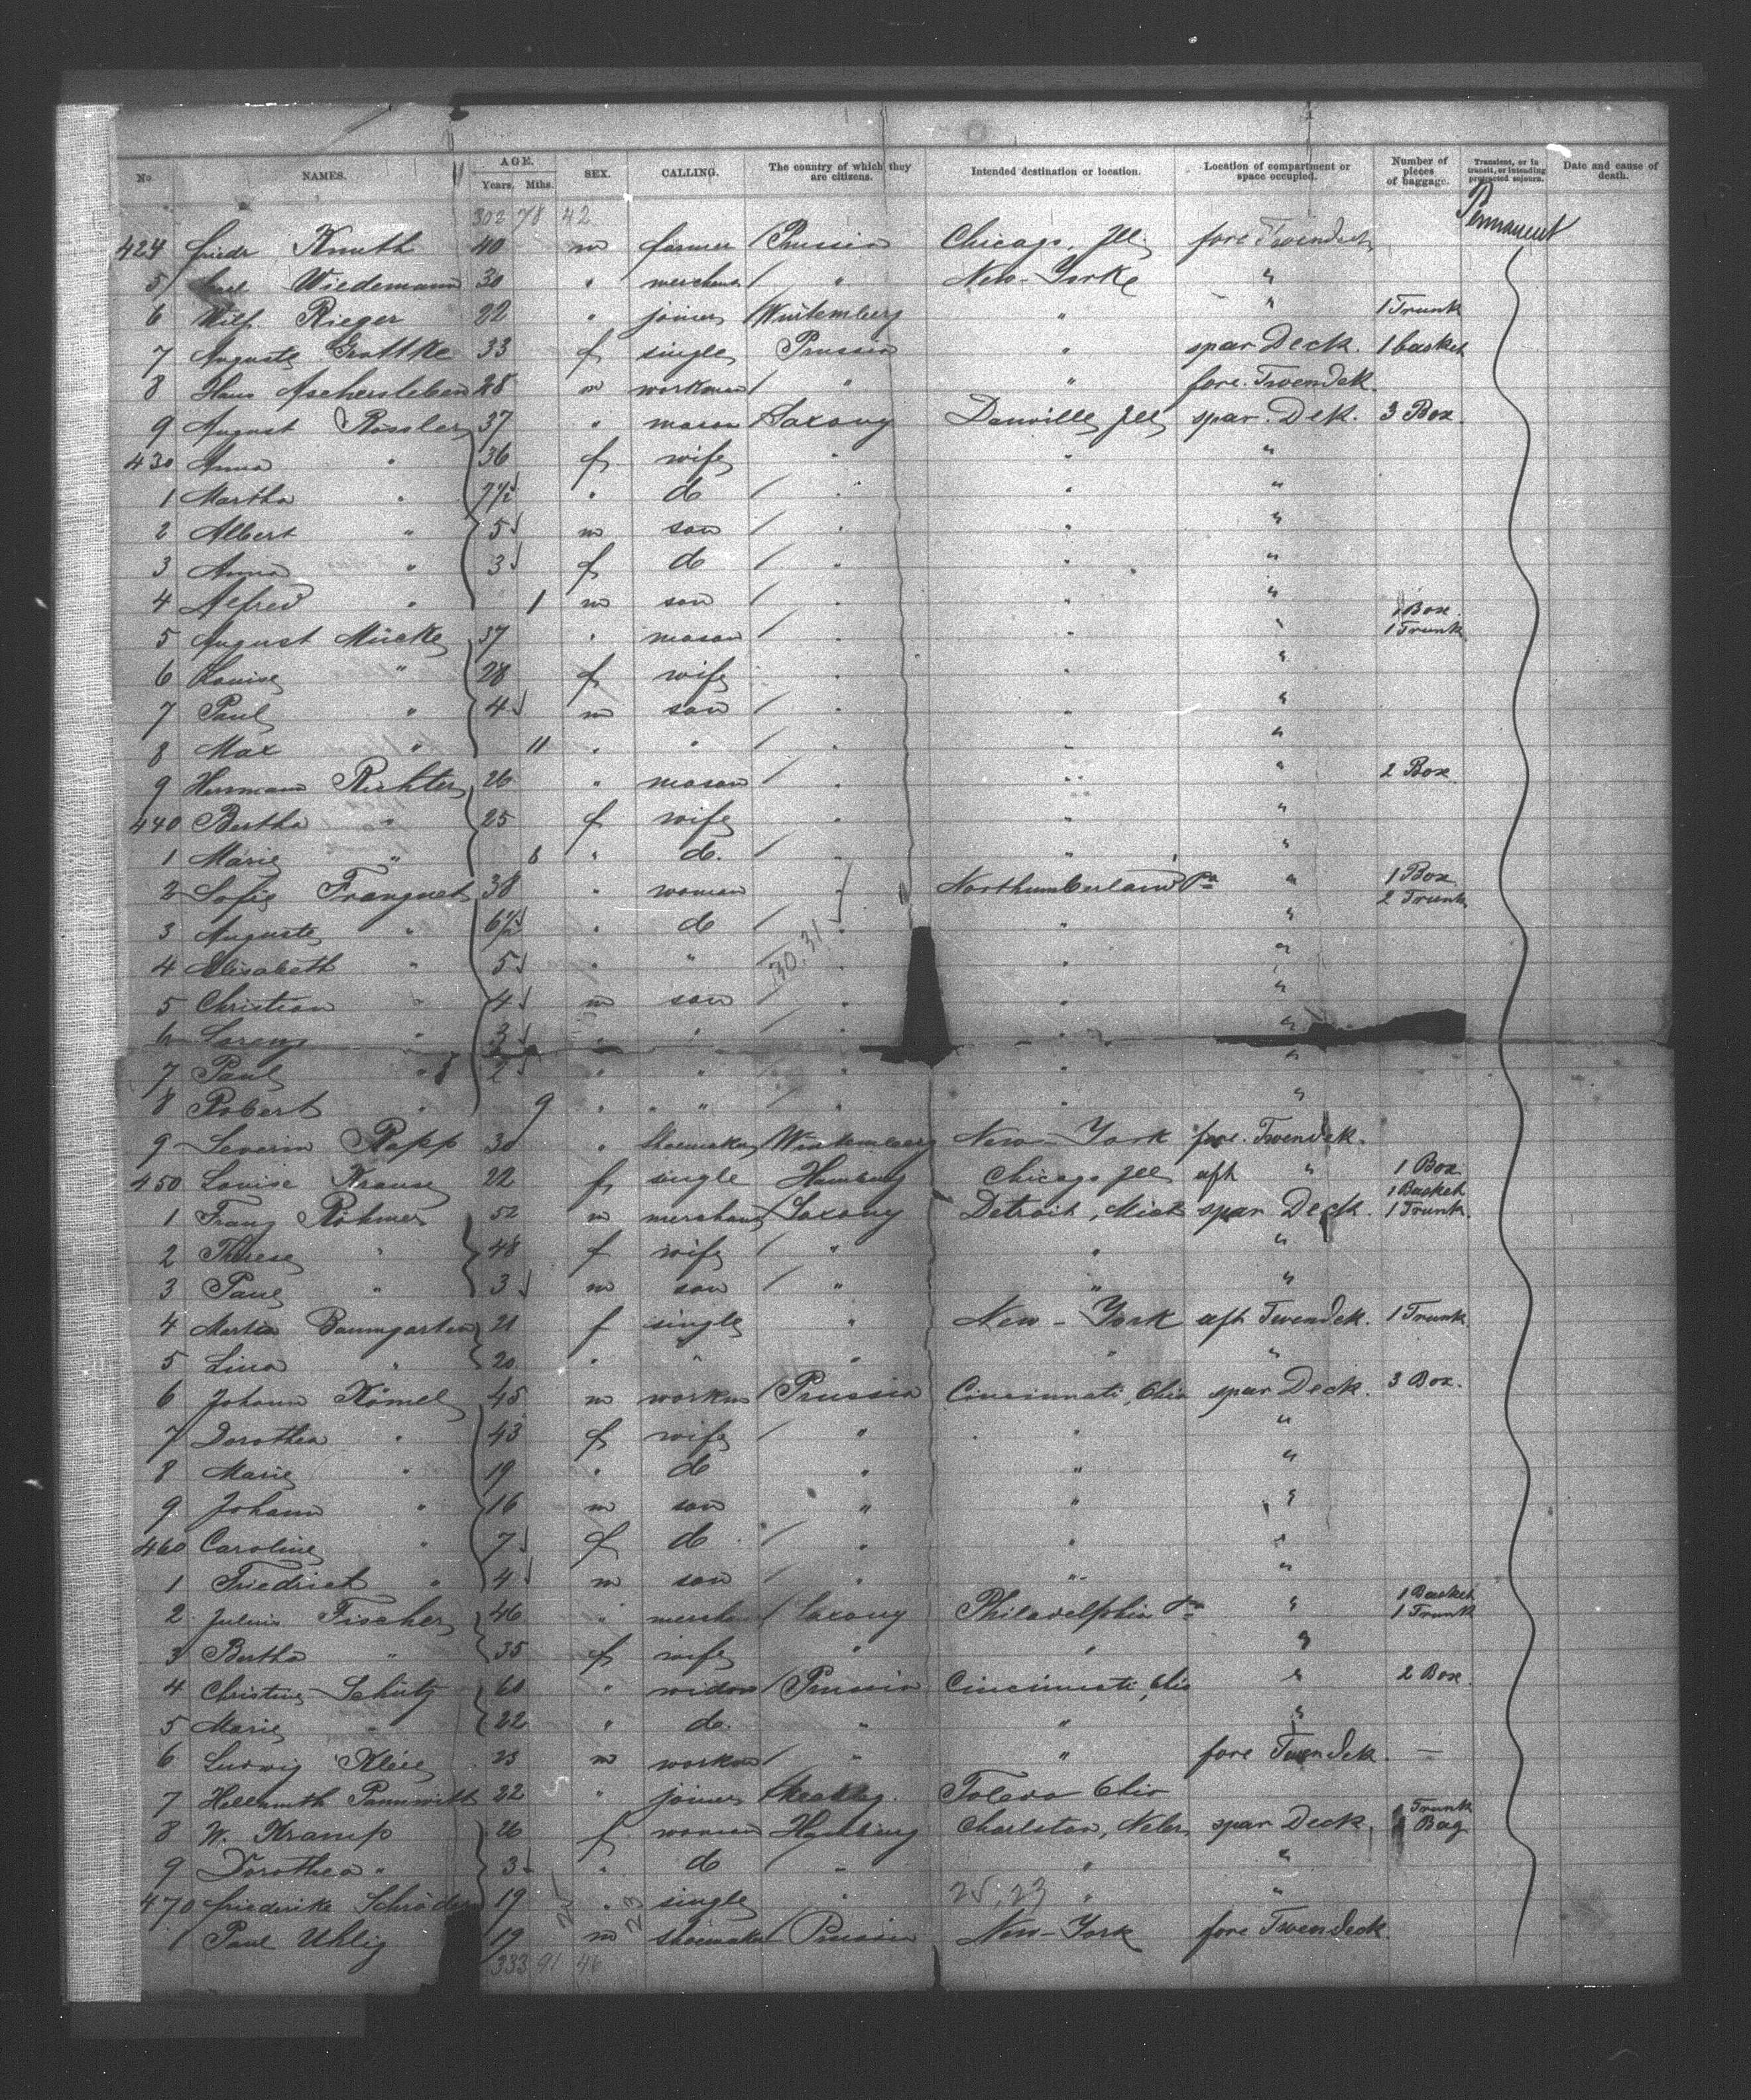 No. NAMES. AGE. Years. Mths. SEX. CALLING. The country of which they are citizens. Intended destination or location. Location of compartment or space occupied. Number of pieces of baggage. Transient, or in transit, or intending protracted sojourn. Date and cause of death.
302 78 42
Permanent
424 Friedr Knuth 40 m farmer / Prussia Chicago, Ill. fore Twendeck
5 Wiedemann 30 " merchant / " New-Yorke "
6 Wilh. Rieger 22 " joiner / Würtemberg " " 1 Trunk
7 Auguste Grottke 33 f single Prussia " spar Deck. 1 basket
8 Hans Aschersleben 28 m workman / " " fore. Twendek.
9 August Rössler 37 " mason / Saxony Danville Ill spar. Dek. 3 Box.
430 Anna " 36 f wife " " "
1 Martha " 7½ " do / " " "
2 Albert " 5 m son / " " "
3 Anna " 3 f do / " " "
4 Alfred " 1 m son / " " "
5 August Mücke 37 " mason / " " " 1 Box. 1 Trunk
6 Louise " 28 f wife " " "
7 Paul " 4 m son / " " "
8 Max " 11 " " / " " "
9 Herrmann Richter 26 " mason / " " " 2 Box.
440 Bertha " 25 f wife " " "
1 Marie " 6 " do. / " " "
2 Sofie Franquet 38 " woman " Northumberland Pa " 1 Box 2 Trunk
3 Auguste " 6½ " do / " " "
130.31
4 Elisabeth " 5 " " " " "
5 Christian " 4 m son / " " "
6 Lorenz " 3 " " / " " "
7 Paul " 2 " " / " " "
8 Robert " 9 " " / " " "
9 Severin Rapp 30 " shoemaker / Würtemberg New-York fore. Twendek.
450 Louise Krause 22 f single Hamburg Chicago Ill aft " 1 Box
1 Franz Röhmer 52 m merchant / Saxony Detroit, Mich spar Deck. 1 Basket 1 Trunk.
2 Therese " 48 f wife / " " "
3 Paul " 3 m son / " " "
4 Martha Baumgarten 21 f single " New-York aft Twendek. 1 Trunk
5 Lina " 20. " " " " "
6 Johann Kömel 45 m workm / Prussia Cincinnati, Ohio spar Deck. 3 Box.
7 Dorothea " 43 f wife / " " "
8 Marie " 19 " do " " "
9 Johann " 16 m son " " "
460 Caroline " 7 f do. / " " "
1 Friedrich " 4 m son / " " "
2 Julius Fischer 46 " merchant / Saxony Philadelphia Pa " 1 Basket 1 Trunk
3 Bertha " 35 f wife " " "
4 Christine Schütz 60 " widow / Prussia Cincinnati, Ohio " 2 Box.
5 Marie " 22 " do. " " "
6 Ludwig 23 m workm / " " fore Twendek. —
7 Hellmuth Pannwitt 22 " joiner / Toledo Ohio
8 W. Kramp 26 f woman Hamburg Charleston, Nebr spar Deck. 1 Trunk 1 Bag
9 Dorothea " 3 " do / " " "
470 Friederike Schröder 19 " single " 25,23 " "
25 23
1 Paul Uhlig 19 m shoemaker / Prussia New-York fore Twendeck.
333 91 46